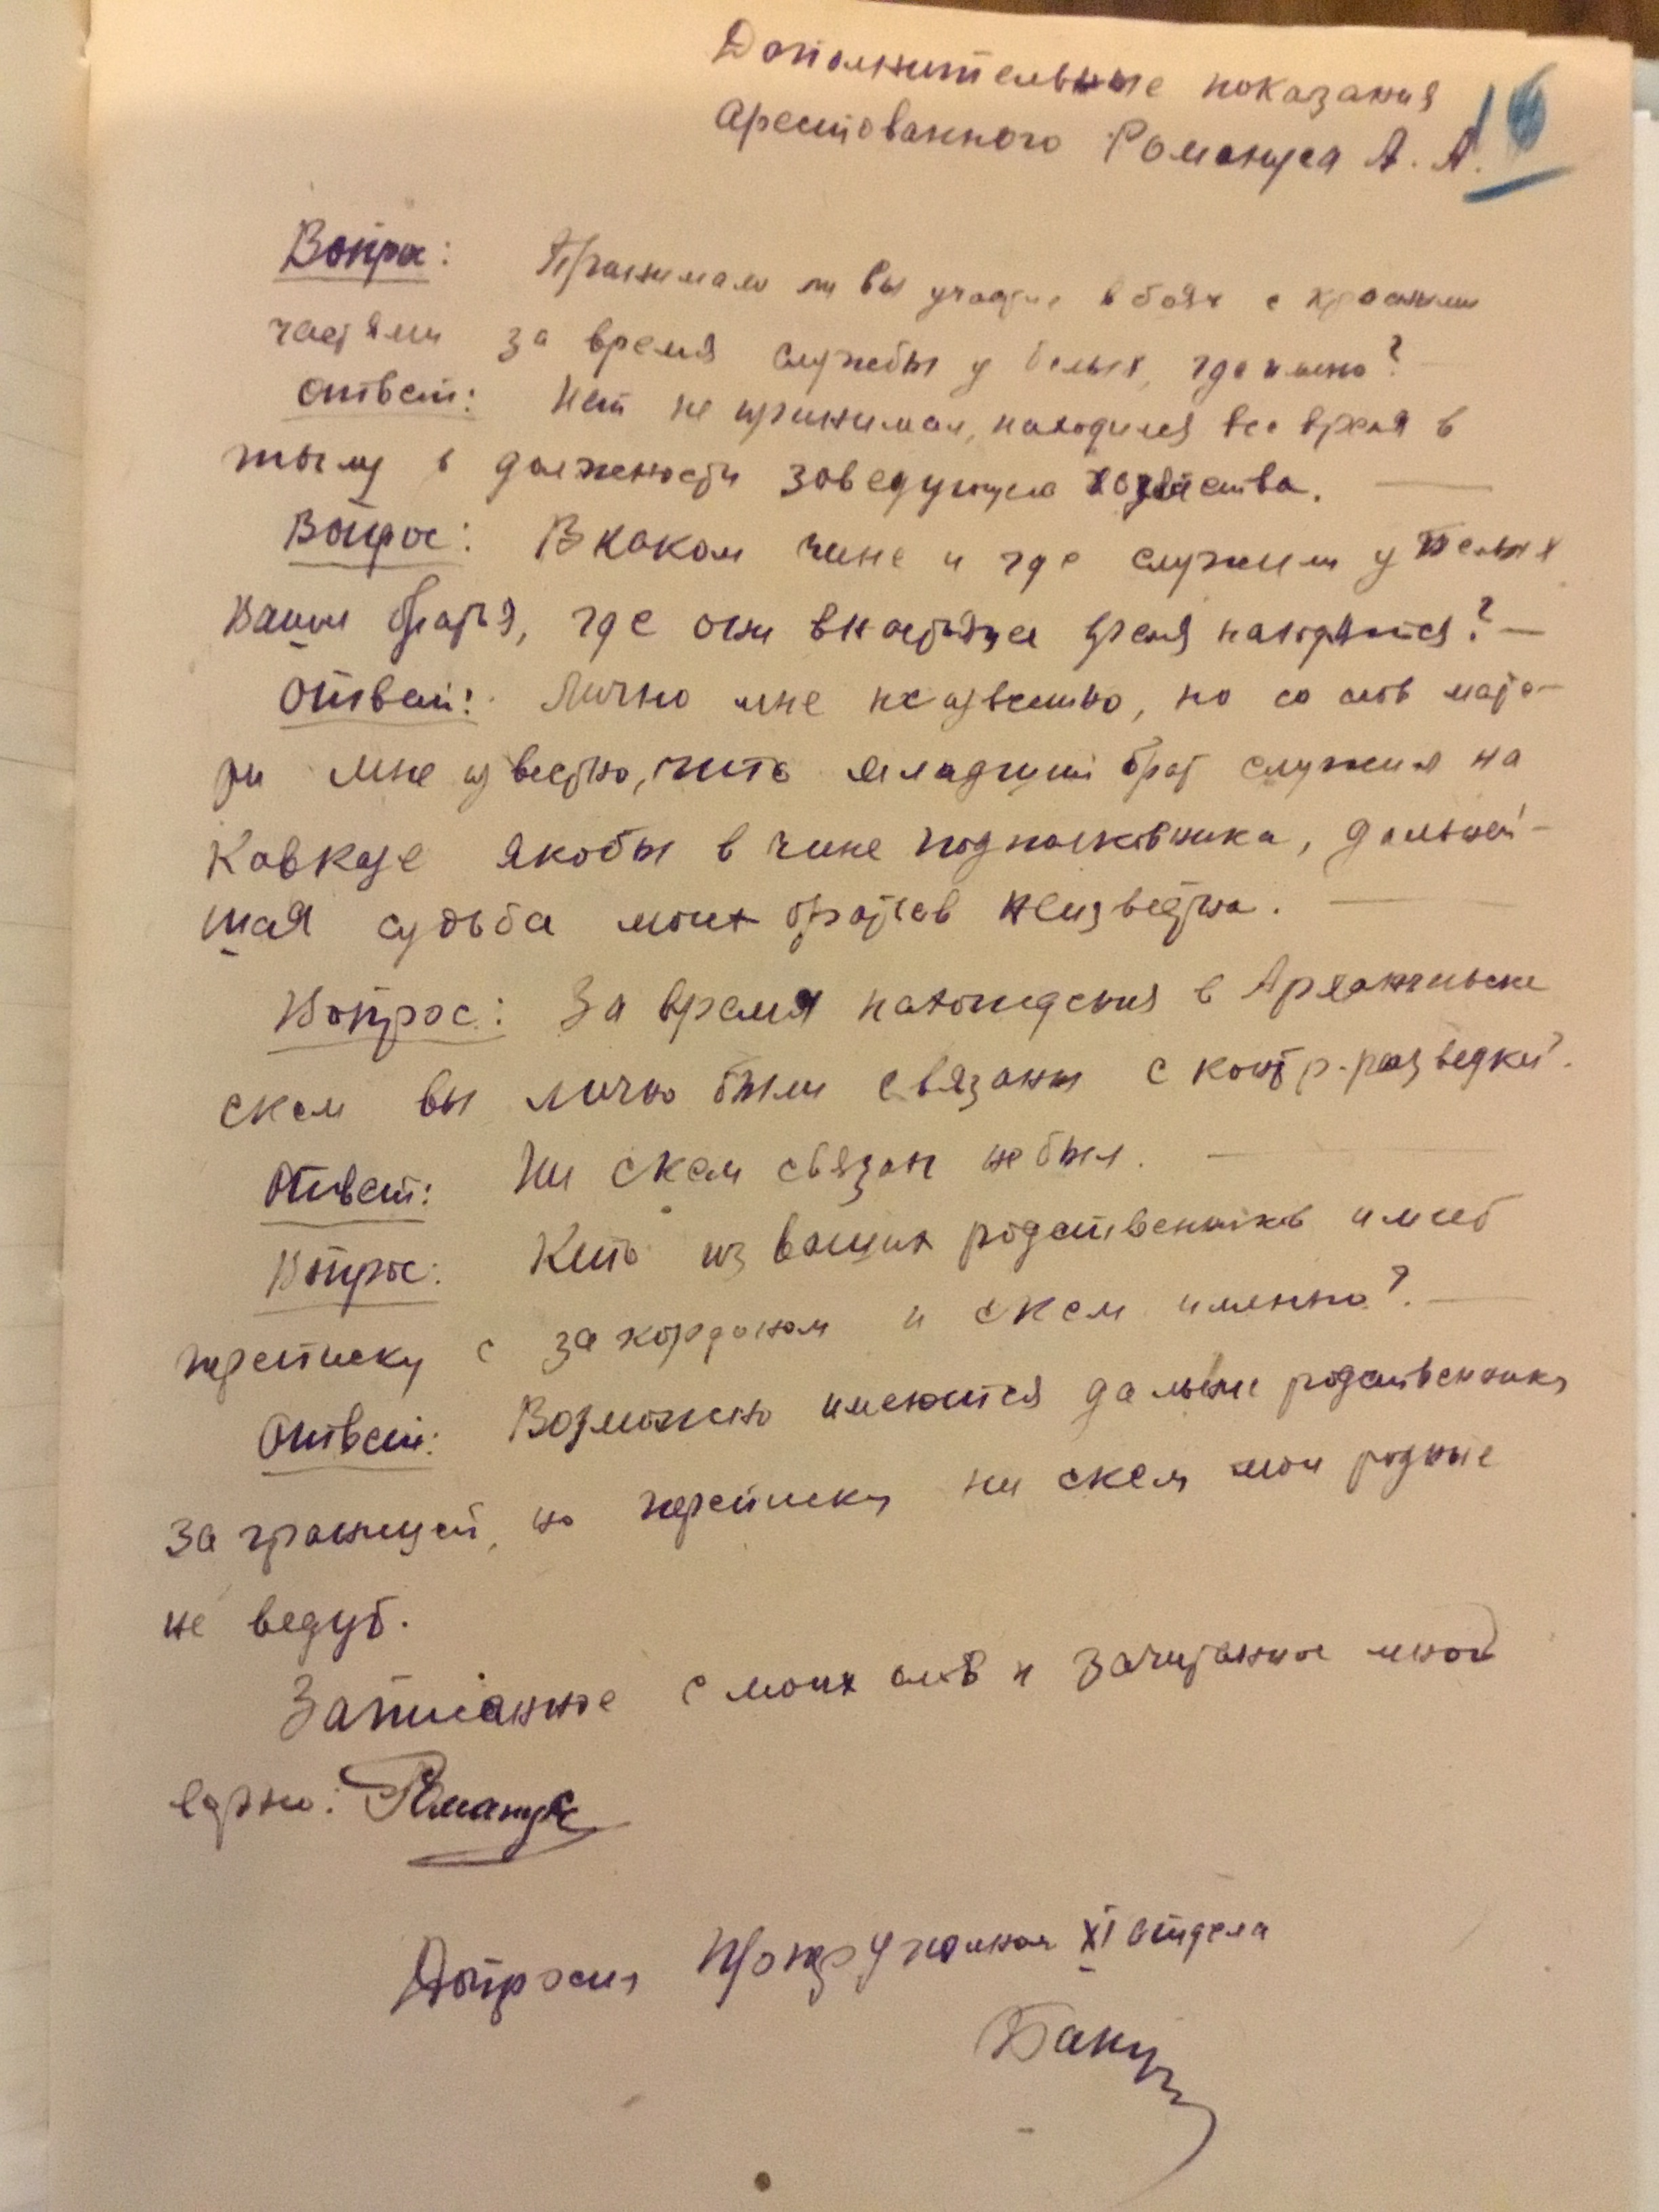 Дополнительные показания
арестованного Романуса А. А.
Вопрос: Принимали ли вы участие в боях с красными
частями за время службы у белых, где именно?
Ответ: Нет не принимал, находился все время в
тылу в должности заведующего хозяйства.
Вопрос: В каком чине и где служили у белых
Ваши братья, где они в настоящее время находятся?
Ответ: Лично мне неизвестно, но со слов мате-
ри мне известно, что младший брат служил на
Кавказе якобы в чине подполковника, дальней-
шая судьба моих братьев неизвестна.
Вопрос: За время нахождения в Архангельске
с кем вы лично были связаны с контр-разведкой.
Ответ: Ни с кем связан не был.
Вопрос: Кто из ваших родственников имеет
переписку с за кордоном и с кем именно?
Ответ: Возможно имеются дальние родственники
за границей, но переписку ни с кем мои родные
не ведут.
Записанное с моих слов и зачитанное мной
верно: Романус
Допросил XI отдела